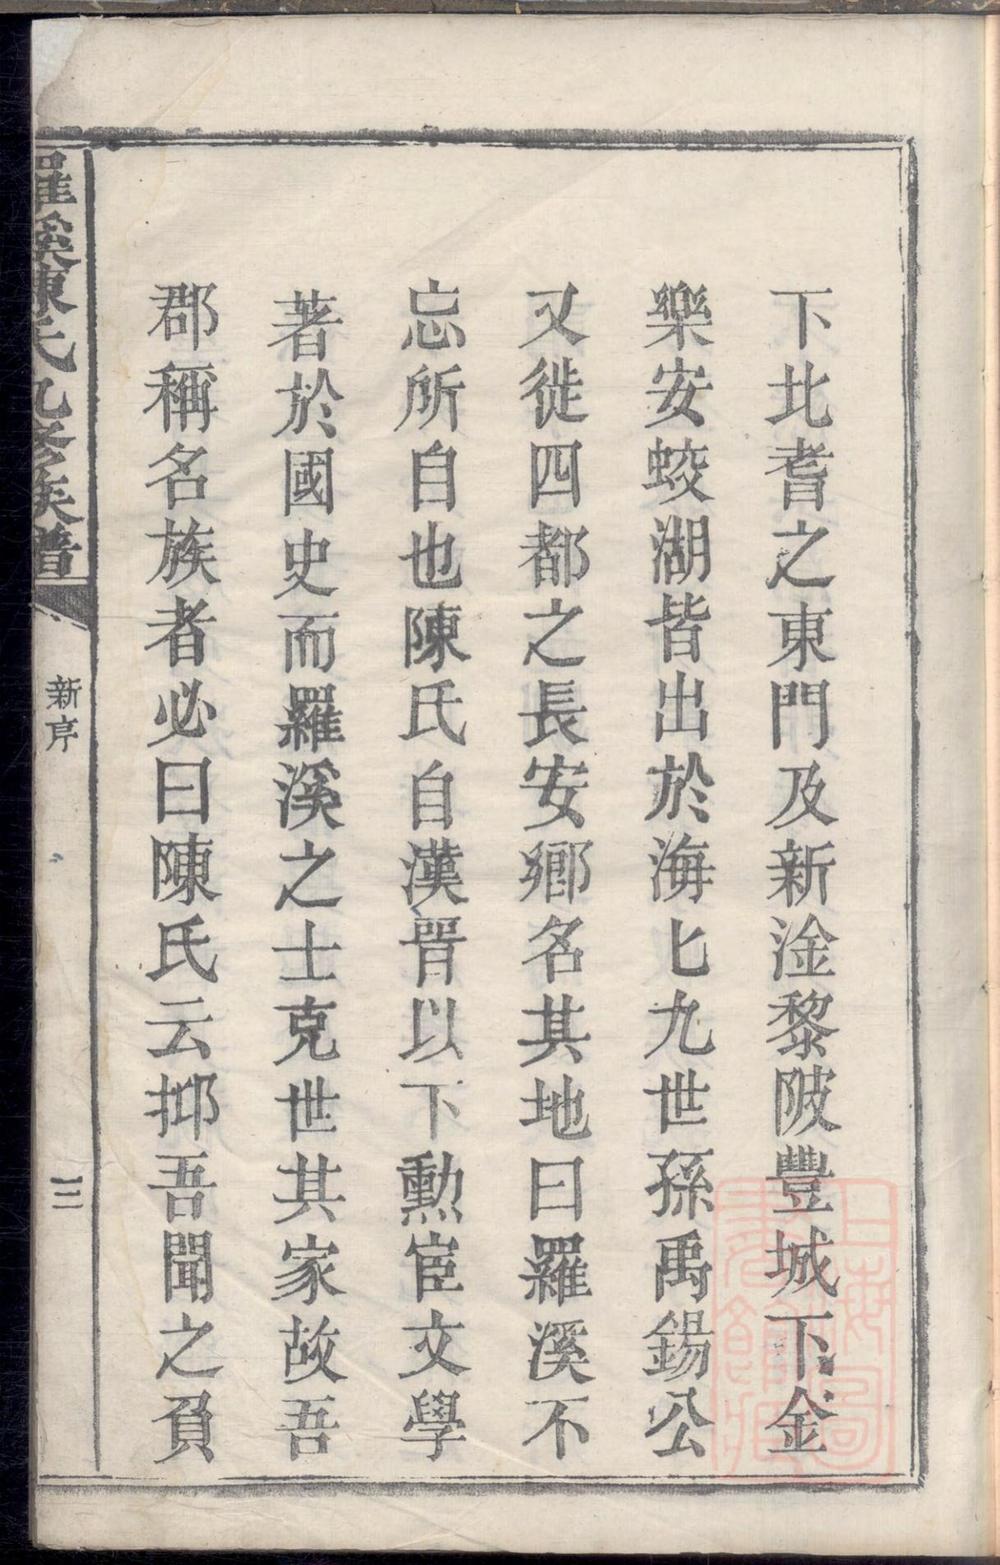 下北耆之東門及新淦黎陂豐城下金
樂安蛟湖皆出於海七九世孫禹錫公
又徙四都之長安鄉名其地曰羅溪不
忘所自也陳氏自漢晉以下勳宦文學
著於國史而羅溪之士克世其家故吾
郡稱名族者必曰陳氏云抑吾聞之負
羅溪陳氏九修族譜
新序
三